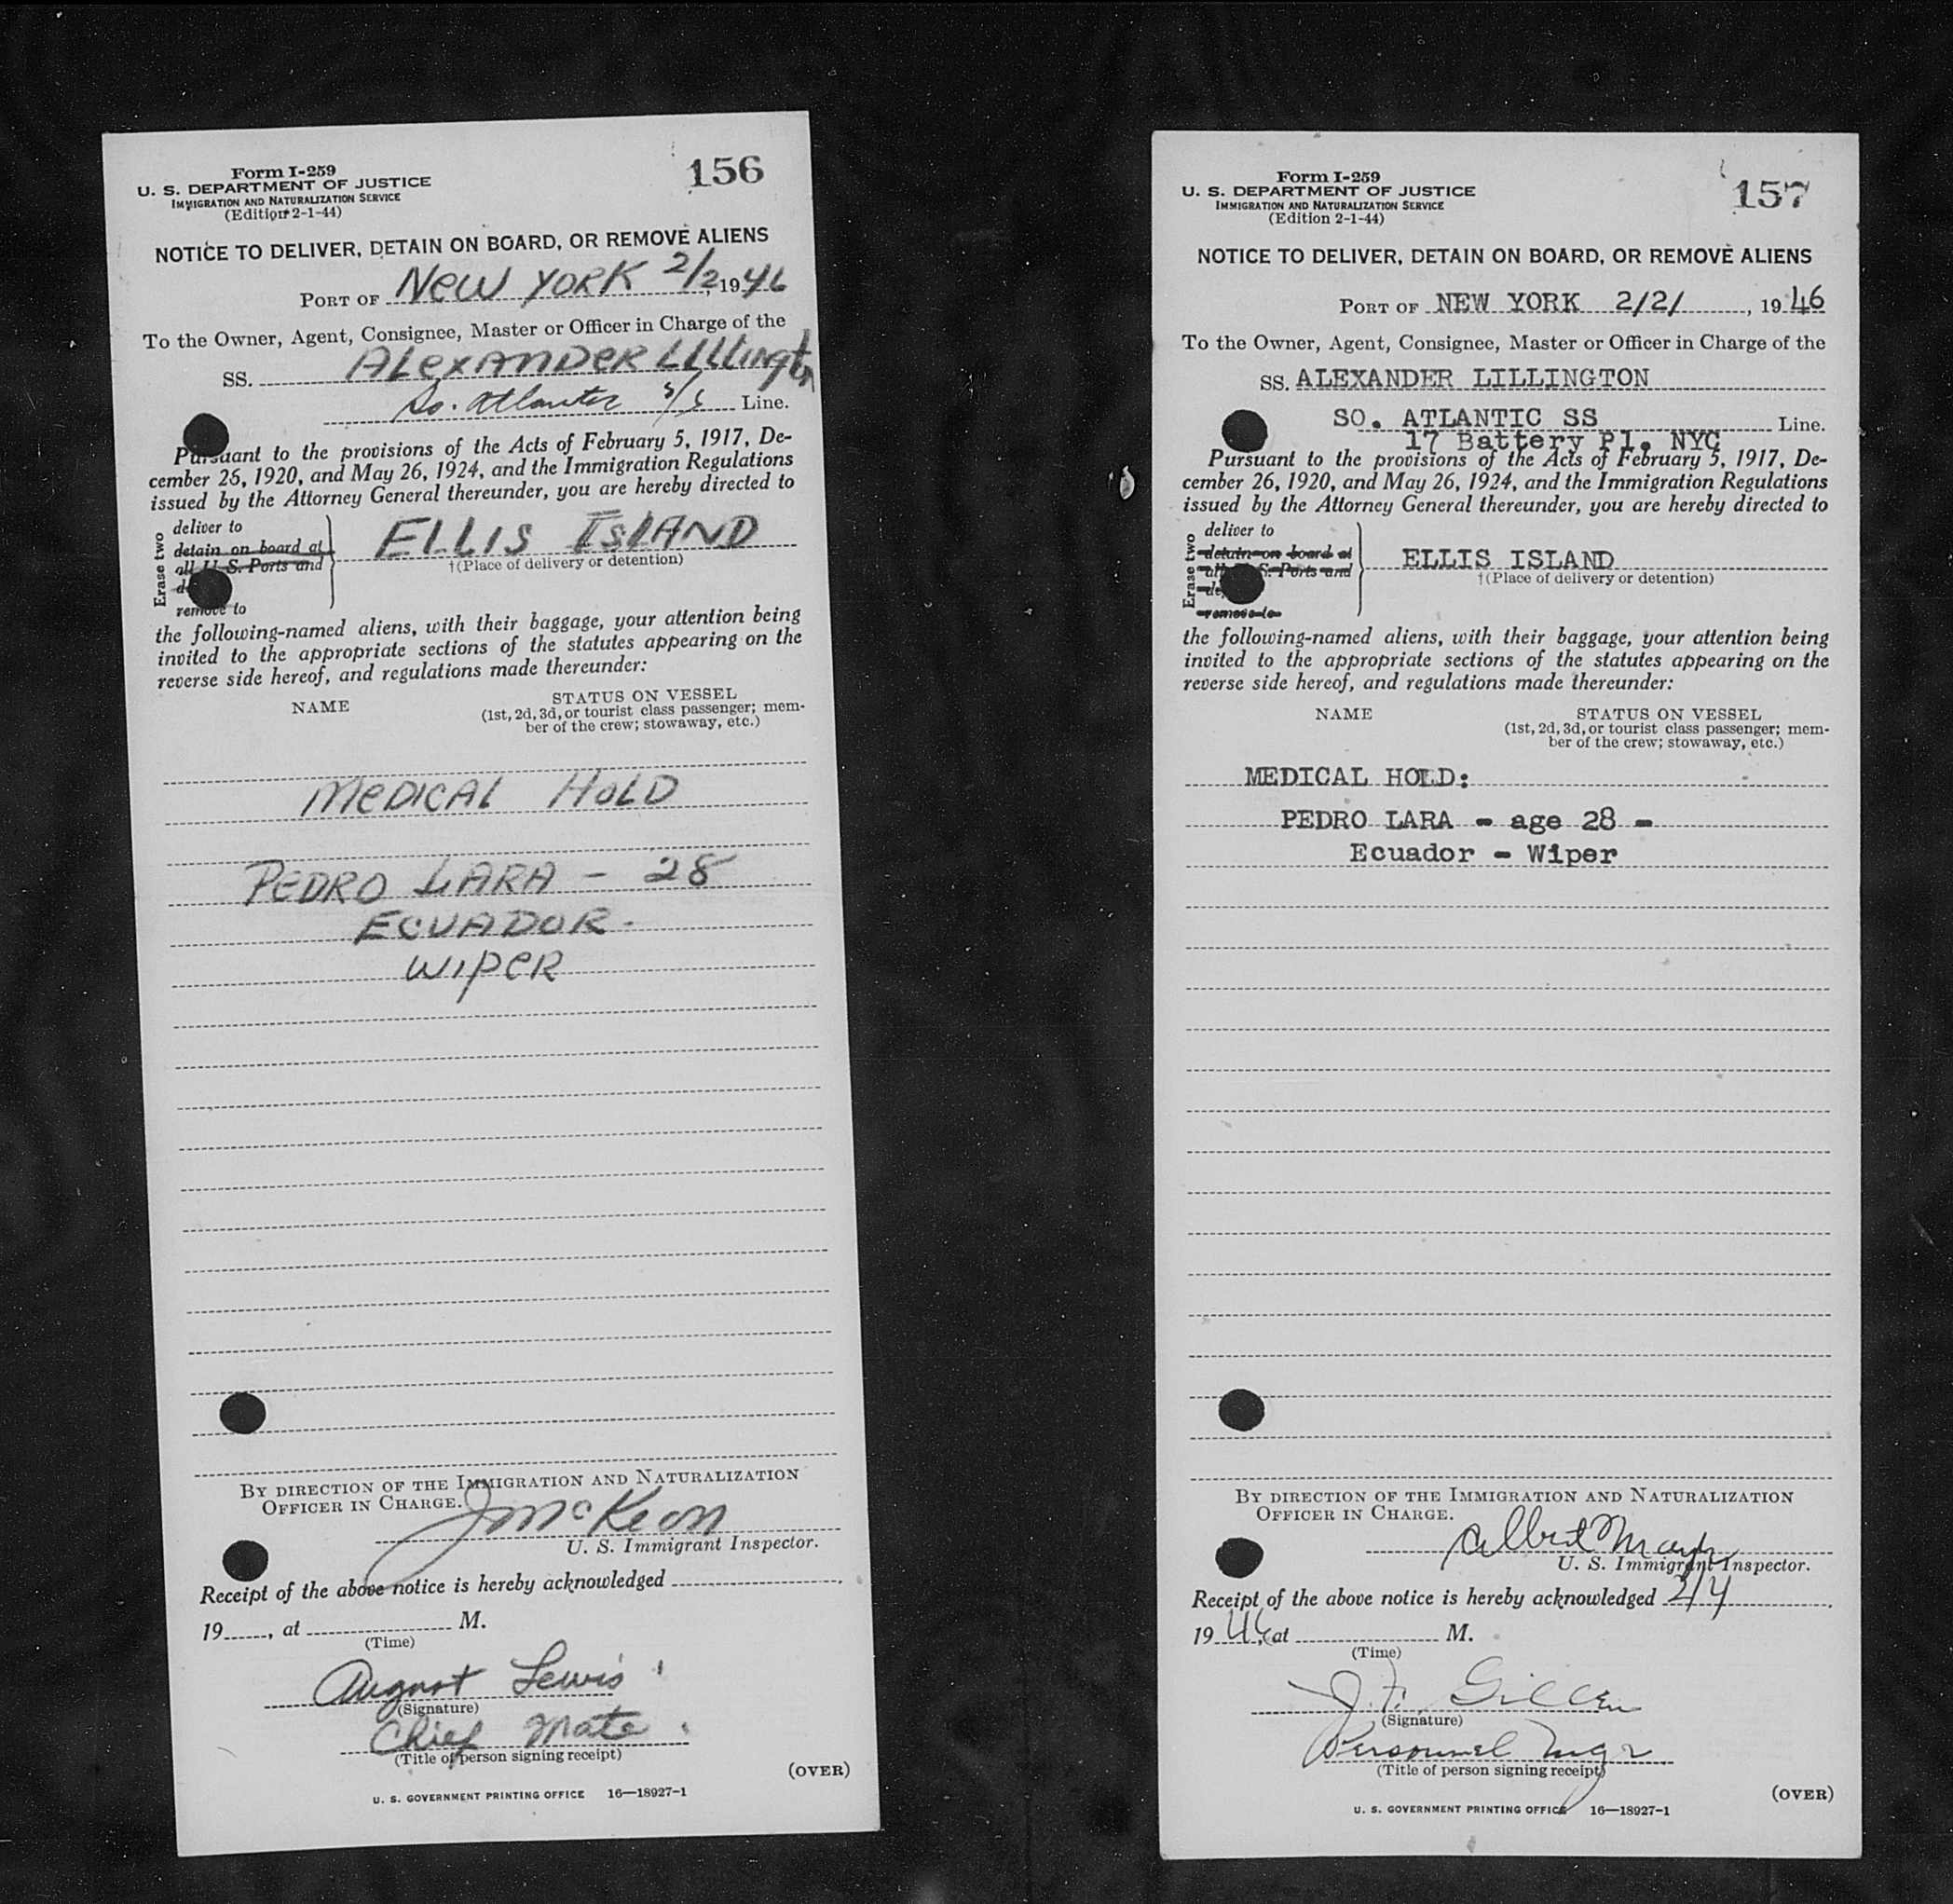 156
Form I-259
U. S. DEPARTMENT OF JUSTICE
IMMIGRATION AND NATURALIZATION SERVICE
(Edition 2-1-44)
NOTICE TO DELIVER, DETAIN ON BOARD, OR REMOVE ALIENS
PORT OF NEW YORK 2/2, 1946
To the Owner, Agent, Consignee, Master or Officer in Charge of the
SS. ALEXANDER LILLINGTON
So. Atlantic S/S Line.
Pursuant to the provisions of the Acts of February 5, 1917, De-
cember 26, 1920, and May 26, 1924, and the Immigration Regulations
issued by the Attorney General thereunder, you are hereby directed to
Erase two
deliver to
detain on board at
all U. S. Ports and
remove to
ELLIS ISLAND
†(Place of delivery or detention)
the following-named aliens, with their baggage, your attention being
invited to the appropriate sections of the statutes appearing on the
reverse side hereof, and regulations made thereunder:
NAME STATUS ON VESSEL
(1st, 2d, 3d, or tourist class passenger; mem-
ber of the crew; stowaway, etc.)
MEDICAL HOLD
PEDRO LARA - 28
ECUADOR-
WIPER
BY DIRECTION OF THE IMMIGRATION AND NATURALIZATION
OFFICER IN CHARGE.
J McKeon
U. S. Immigrant Inspector.
Receipt of the above notice is hereby acknowledged
19____, at ____ M.
(Time)
August Lewis
(Signature)
Chief Mate
(Title of person signing receipt)
(OVER)
U. S. GOVERNMENT PRINTING OFFICE 16—18927-1
157
Form I-259
U. S. DEPARTMENT OF JUSTICE
IMMIGRATION AND NATURALIZATION SERVICE
(Edition 2-1-44)
NOTICE TO DELIVER, DETAIN ON BOARD, OR REMOVE ALIENS
PORT OF NEW YORK 2/2/, 1946
To the Owner, Agent, Consignee, Master or Officer in Charge of the
SS. ALEXANDER LILLINGTON
SO. ATLANTIC SS Line.
17 Battery Pl. NYC
Pursuant to the provisions of the Acts of February 5, 1917, De-
cember 26, 1920, and May 26, 1924, and the Immigration Regulations
issued by the Attorney General thereunder, you are hereby directed to
Erase two
deliver to
detain on board at
all U. S. Ports and
remove to
ELLIS ISLAND
†(Place of delivery or detention)
the following-named aliens, with their baggage, your attention being
invited to the appropriate sections of the statutes appearing on the
reverse side hereof, and regulations made thereunder:
NAME STATUS ON VESSEL
(1st, 2d, 3d, or tourist class passenger; mem-
ber of the crew; stowaway, etc.)
MEDICAL HOLD:
PEDRO LARA - age 28 -
Ecuador - Wiper
BY DIRECTION OF THE IMMIGRATION AND NATURALIZATION
OFFICER IN CHARGE.
Albert
U. S. Immigrant Inspector.
Receipt of the above notice is hereby acknowledged 2/4
1946, at ____ M.
(Time)
J. F. Gillen
(Signature)
Personnel Mgr
(Title of person signing receipt)
(OVER)
U. S. GOVERNMENT PRINTING OFFICE 16—18927-1